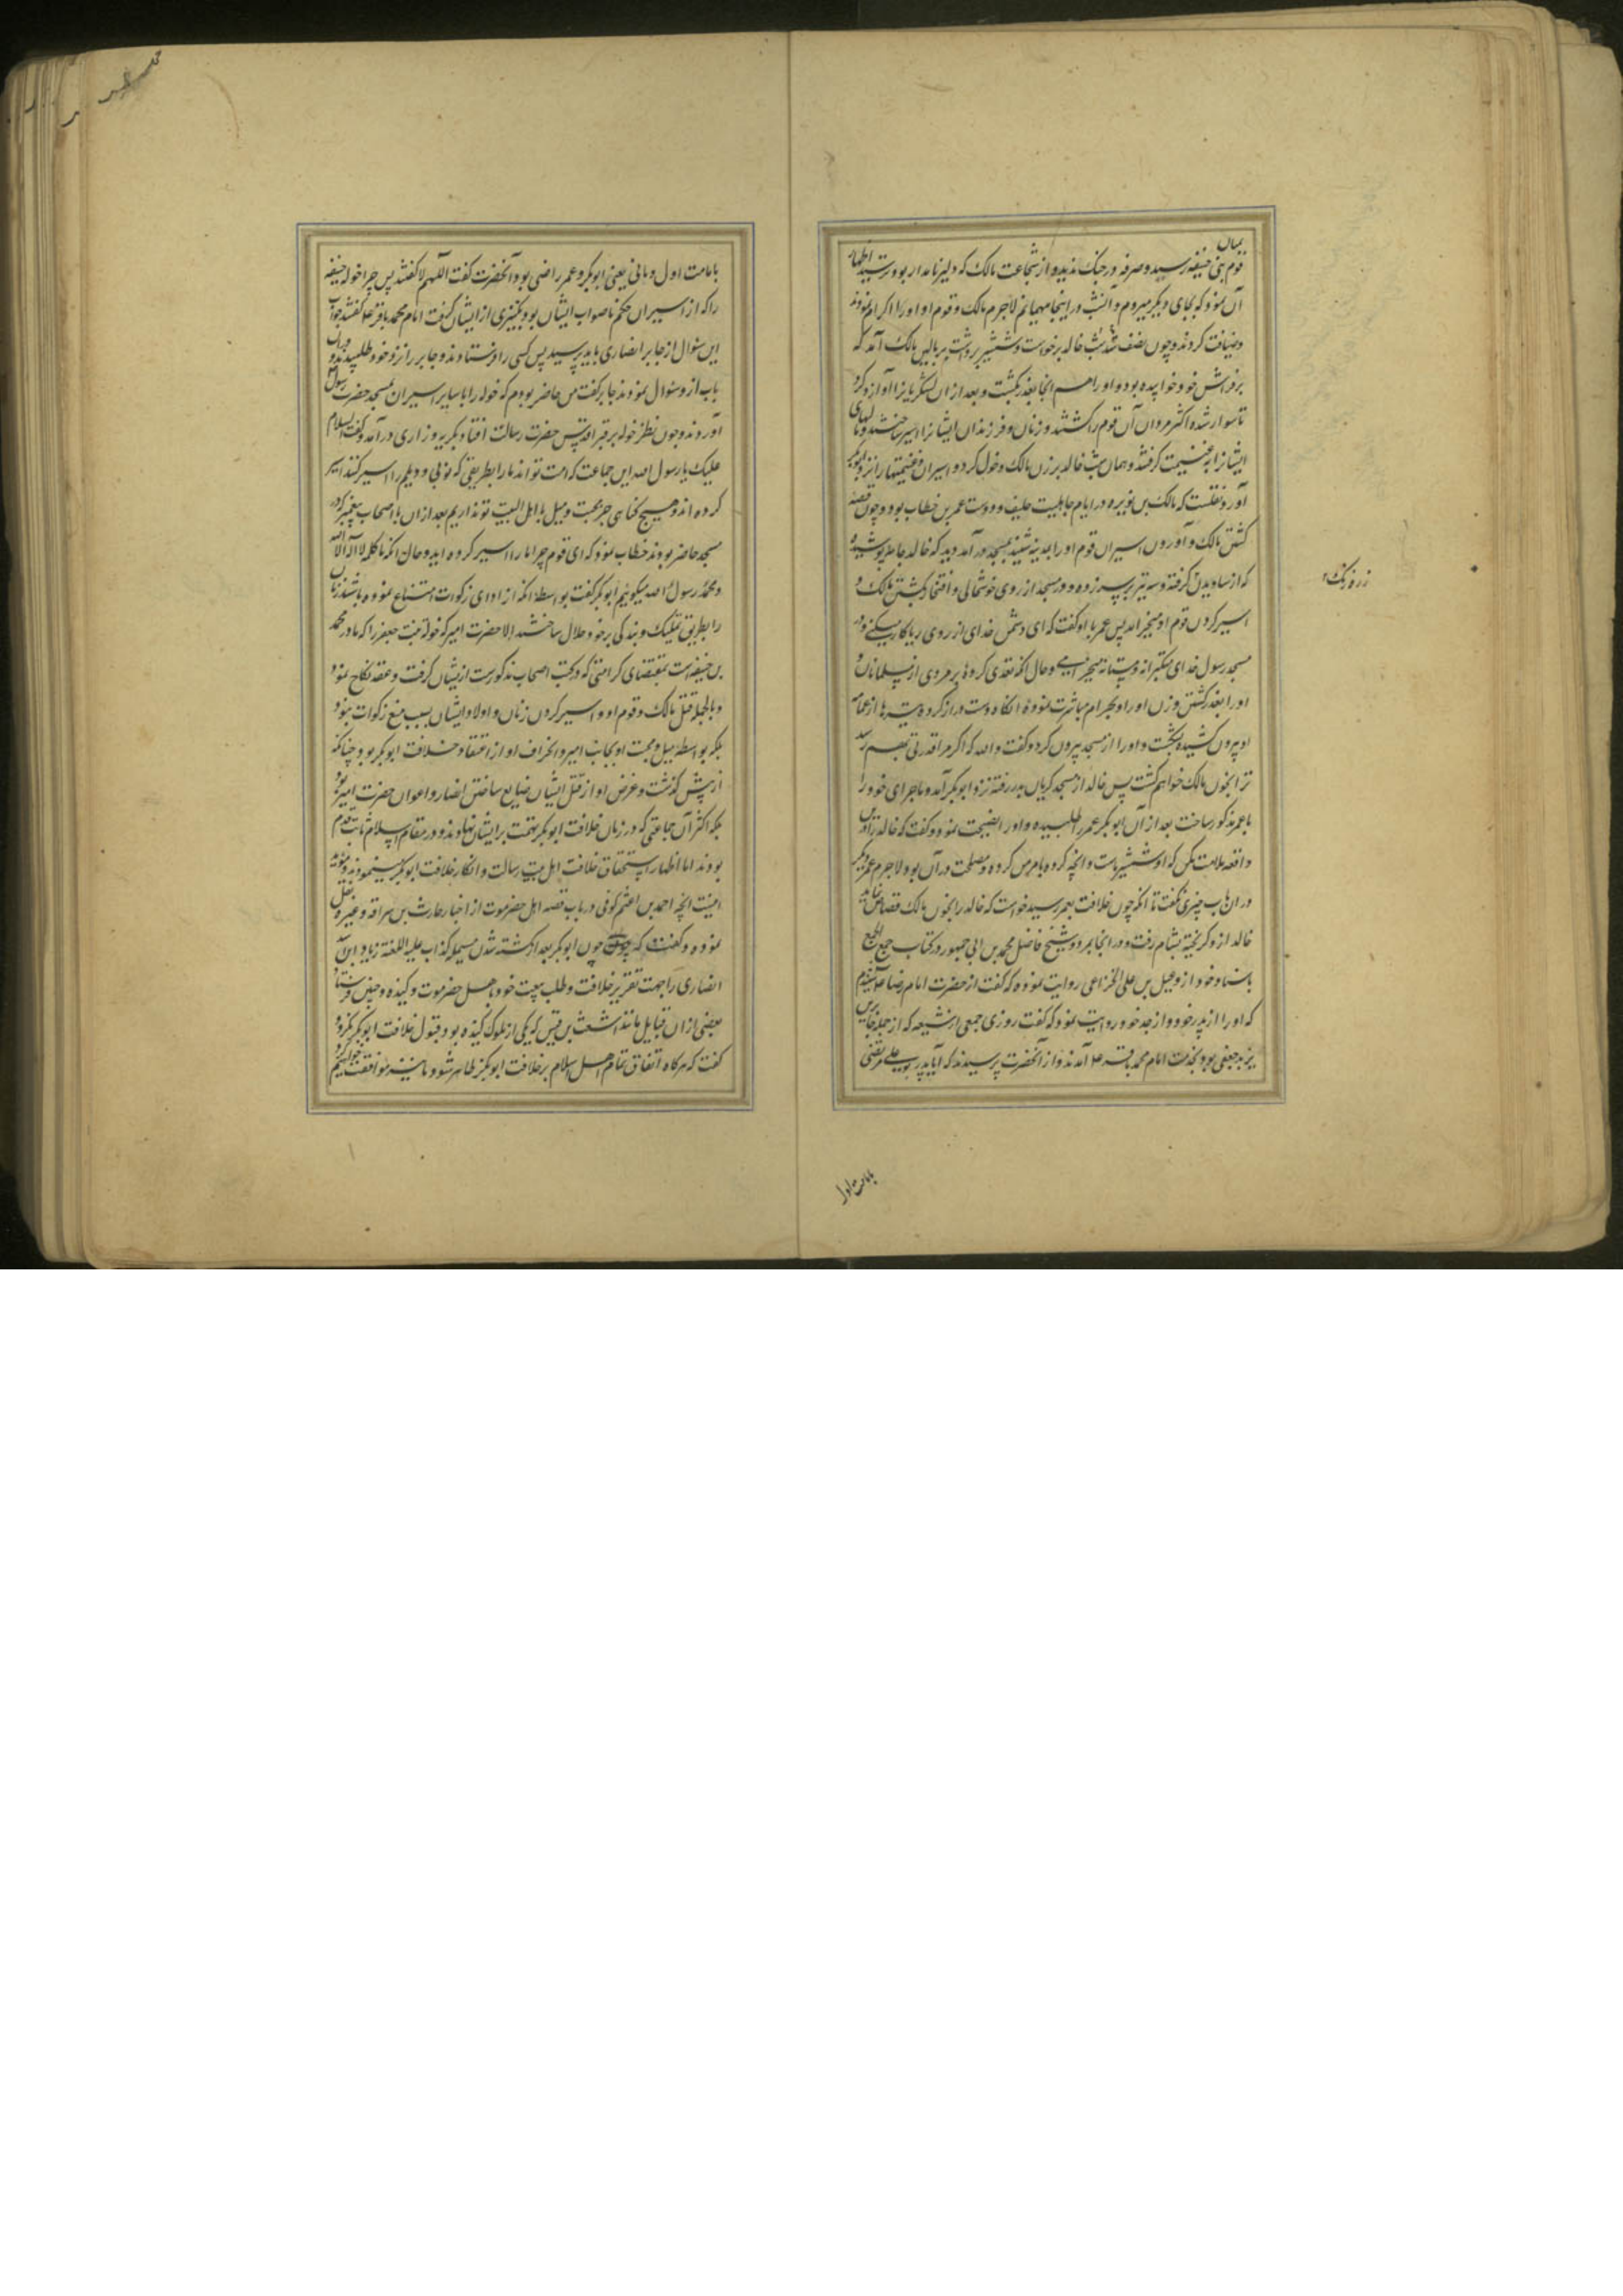 قوم بنی حنیفه رسید و صرفه در جنک ندید و از شجاعت مالک که دلیر نامدار بود ترسید اظهار
آن نمود که بجای دیکر میروم و امشب در اینجا مهمانم لاجرم مالک و قوم او او را اکرام نمودند
و ضیافت کردند و چون نصف شب شد خالد برخواست و شمشیر برداشت بر بالین مالک آمد که
بر فراش خود خوابیده بود و او را هم انجا بغدر بکشت و بعد از ان لشکریانرا آواز کرد
تا سوار شده اکثر مردان آن قوم را کشتند و زنان و فرزندان ایشانرا اسیر ساختند و مالهای
ایشانرا به غنیمت کرفتند و همان شب خالد بر زن مالک دخول کرد و اسیران و غنیمتها را نزد ابوبکر
آورد نقلست که مالک بن نویره در ایام جاهلیت حلیف و دوست عمر بن خطاب بود و چون قصه
کشتن مالک و آوردن اسیران قوم او را بمدینه شنید بمسجد در آمد دید که خالد جامه پوشیده
که از ساو بدن کرفته و سه تیر بر سر زده و در مسجد از روی خوشحالی و افتخار بکشتن مالک و
اسیر کردن قوم او میخرامد پس عمر با او کفت که ای دشمن خدای از روی ریا کار میکنی و در
مسجد رسول خدای متکبرانه و مستانه میخرامی و حال انکه تعدی کرده بر مردی از مسلمانان و
او را بغدر کشتن و زن او را و بحرام مباشرت نموده انکاه دست دراز کرده تیرها از عمامه
او بیرون کشیده بشکست و او را از مسجد بیرون کرد و کفت والله که اکر مرا قدرتی بهم رسد
ترا بخون مالک خواهم کشت پس خالد از مسجد کریان بدر رفته نزد ابوبکر آمد و ماجرای خود را
با عمر مذکور ساخت بعد از آن ابوبکر عمر را طلبیده و او را نصیحت نمود و کفت که خالد را درین
واقعه ملامت مکن که او شمشیر ماست و انچه کرده بامر من کرده و مصلحت در آن بود لاجرم عمر دیکر
در ان باب چیزی نکفت تا انکه چون خلافت بعمر رسید خواست که خالد را بخون مالک قصاص نماید
خالد از و کریخته بشام رفت و در انجا بمرد و شیخ فاضل محمد بن ابی جمهور در کتاب جمع الجمع
باسناد خود از دعبل بن علی الخزاعی روایت نموده که کفت از حضرت امام رضا ع شنیدم
که او را از پدر خود و از جد خود روایت نمود که کفت روزی جمعی از شیعه که از جمله جابر بن
یزید جعفی بود بخدمت امام محمد باقر ع آمدند و از آنحضرت پرسیدند که آیا پدرت علی مرتضی
زره رنک
بامامت اول
بامامت اول و ثانی یعنی ابوبکر و عمر راضی بود آنحضرت کفت اللهم لا کفتند پس چرا خوله حنفیه
را که از اسیران حکم ناصواب ایشان بود بکنیزی از ایشان کرفت امام محمد باقر ع کفتند جواب
این سئوال از جابر انصاری باید پرسید پس کسی را فرستادند و جابر را نزد خود طلبیدند و در ان
باب از و سئوال نمودند جابر کفت من حاضر بودم که خوله را با سایر اسیران بمسجد حضرت رسول
آوردند و چون نظر خوله بر قبر اقدس حضرت رسالت افتاد بکریه و زاری در آمد و کفت السلام
علیک یا رسول الله این جماعت که امت تواند ما را بطریقی که نوبی و دیلم را اسیر کنند اسیر
کرده اند و هیچ کناهی جز محبت و میل با اهل البیت تو نداریم بعد از ان با اصحاب پیغمبر که در
مسجد حاضر بودند خطاب نمود که ای قوم چرا ما را اسیر کرده اید و حال انکه ما کلمه لا اله الا الله
و محمد رسول الله میکوئیم ابوبکر کفت بواسطه انکه از ادای زکوات امتناع نموده باشند زنان
را بطریق تملیک و بندکی بر خود حلال ساختند الا حضرت امیر که خوله بنت جعفر را که مادر محمد
بن حنفیه است بمقتضای کرامتی که در کتب اصحاب مذکورست از یشان کرفت و عقد نکاح نمود
و بالجمله قتل مالک و قوم او و اسیر کردن زنان و اولاد ایشان بسبب منع زکوات نبود
بلکه بواسطه میل و محبت او بجانب امیر و انحراف او از اعتقاد خلافت ابوبکر بود چنانکه
از پیش کذشت و غرض او از قتل ایشان ضایع ساختن انصار و اعوان حضرت امیر بود
بلکه اکثر آن جماعتی که در زمان خلافت ابوبکر تهمت بر ایشان نهادند در مقام اسلام ثابت قدم
بودند اما اظهار استحقاق خلافت اهل بیت رسالت و انکار خلافت ابوبکر مینمودند و مؤید
اینست انچه احمد بن اعثم کوفی در باب قصه اهل حضرموت از اخبار حارث بن سراقه و غیره نقل
نموده و کفت که چون ابوبکر بعد از کشته شدن مسیلمه کذاب علیه اللعنة زیاد ابن لبید
انصاری را جهت تقریر خلافت و طلب بیعت خود باهل حضرموت و کنده و حنین فرستاد
بعضی از ان قبایل مانند اشعث بن قیس که یکی از ملوک کنده بود قبول خلافت ابوبکر نکرد و
کفت که هر کاه اتفاق تمام اهل اسلام بر خلافت ابوبکر ظاهر شود ما نیز موافقت خواهیم کرد